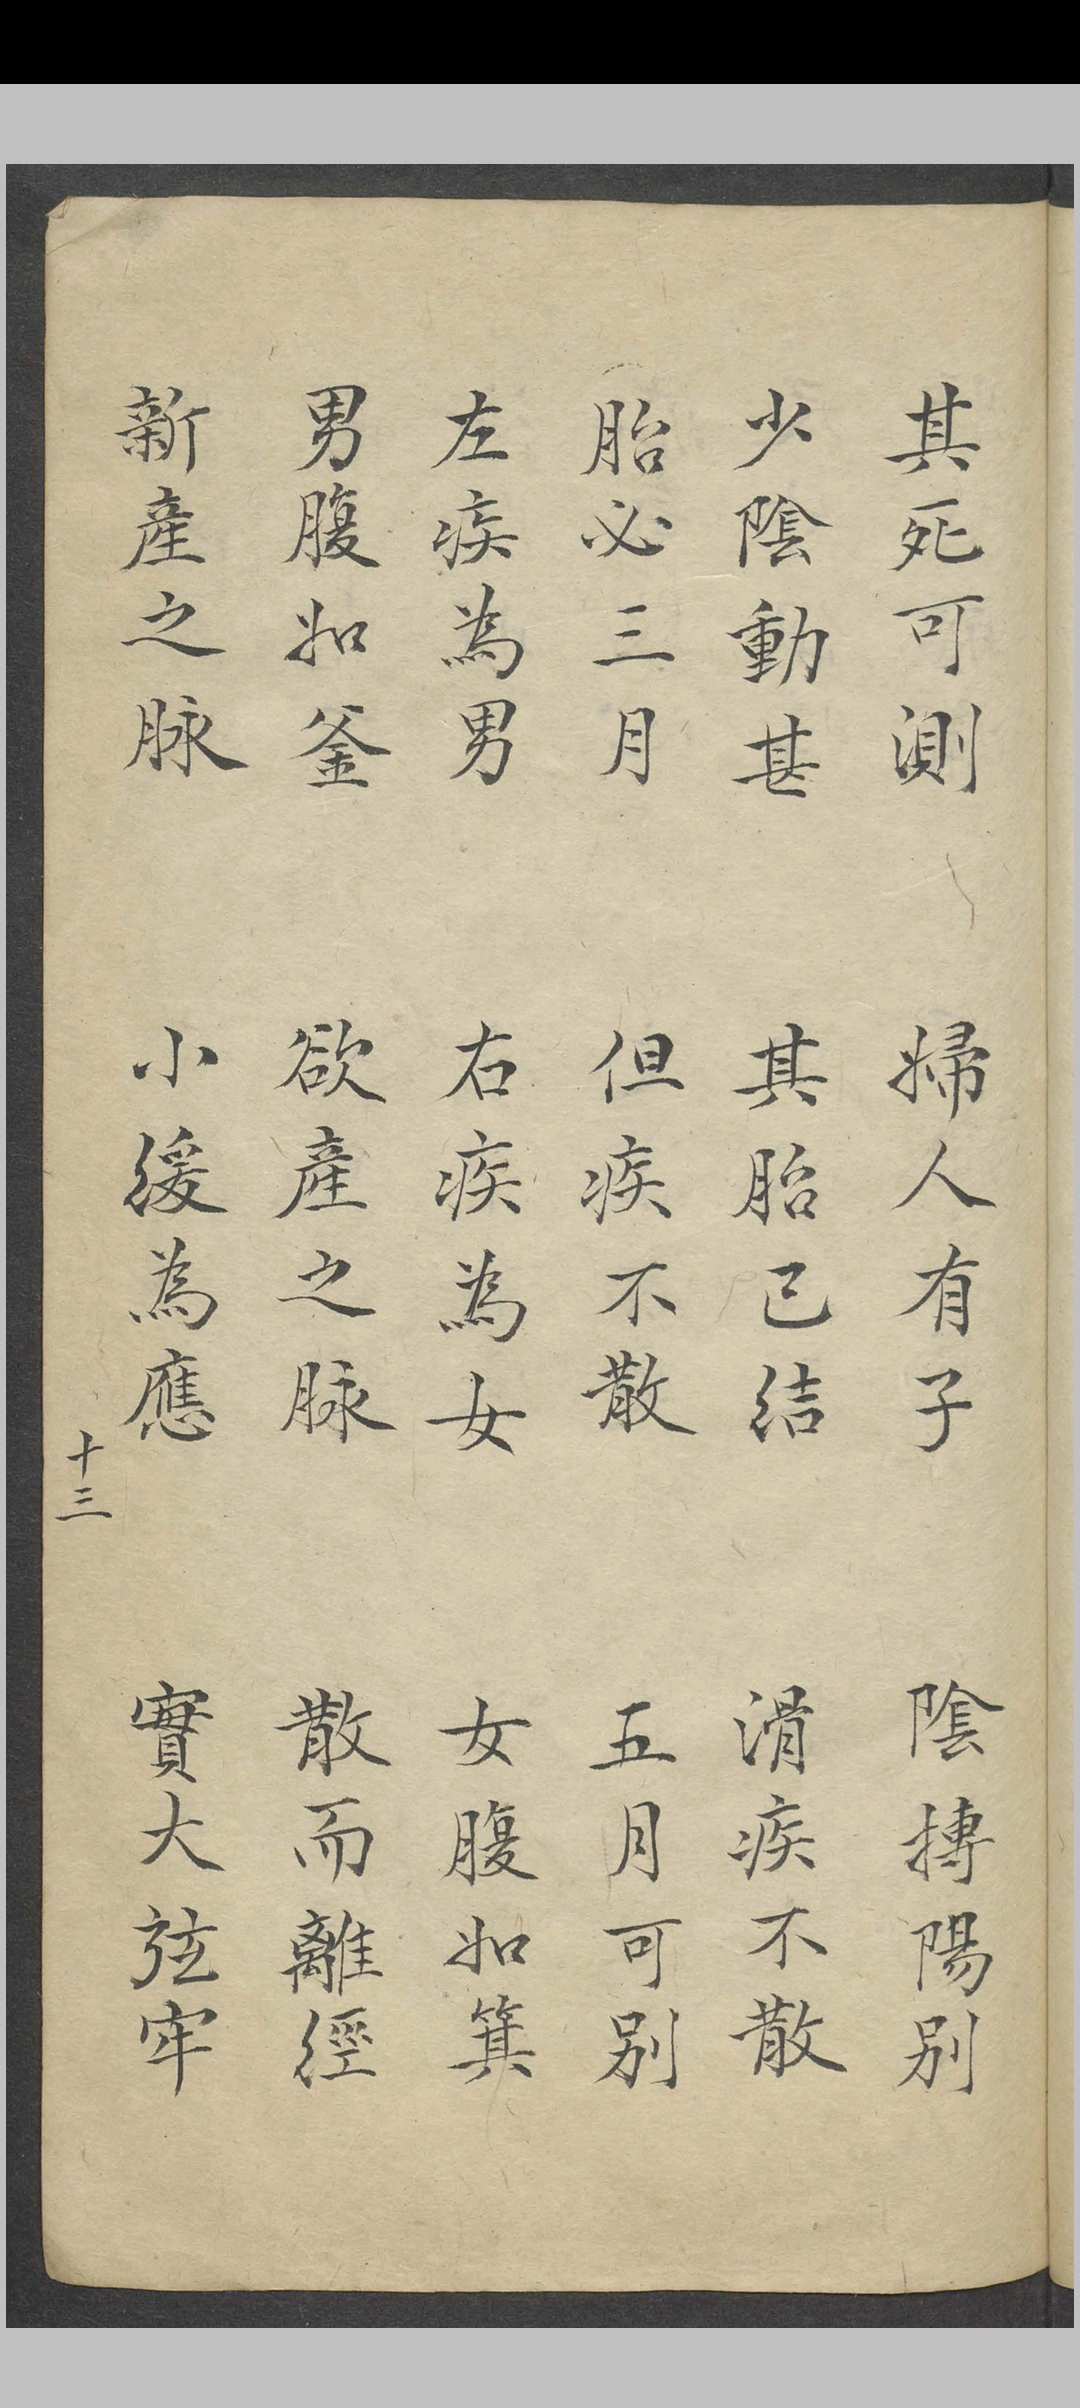 其死可測 婦人有子 陰搏陽別
少陰動甚 其胎已結 滑疾不散
胎必三月 但疾不散 五月可別
左疾為男 右疾為女 女腹如箕
男腹如釜 欲產之脉 散而離經
新產之脉 小緩為應 實大弦牢
十三